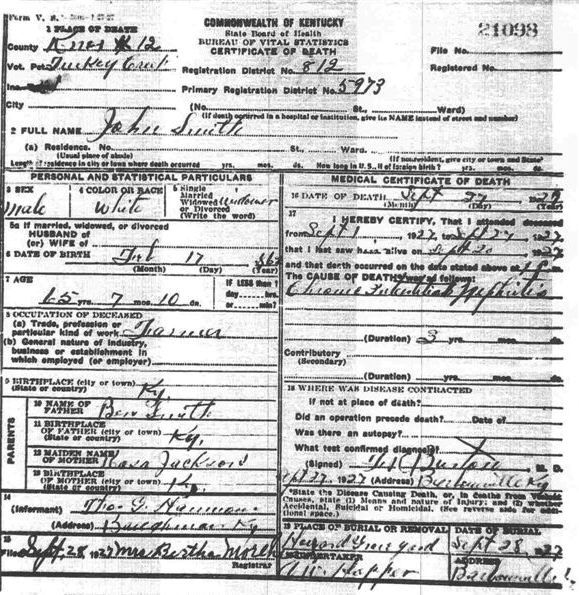 Form V. S.
COMMONWEALTH OF KENTUCKY
State Board of Health
BUREAU OF VITAL STATISTICS
CERTIFICATE OF DEATH
21098
1 PLACE OF DEATH
County Knox # 12
File No.
Vot. Pct. Turkey Creek
Registration District No. 812
Registered No.
Inc.
Primary Registration District No. 5973
City
(No. St., Ward)
(If death occurred in a hospital or institution, give its NAME instead of street and number)
2 FULL NAME John Smith
(a) Residence. No. St., Ward.
(Usual place of abode)
(If nonresident, give city or town and State)
Length of residence in city or town where death occurred yrs. mos. ds. How long in U. S., if of foreign birth? yrs. mos. ds.
PERSONAL AND STATISTICAL PARTICULARS
3 SEX
Male
4 COLOR OR RACE
White
5 Single
Married
Widowed
or Divorced
(Write the word)
Widower
5a If married, widowed, or divorced
HUSBAND of
(or) WIFE of
6 DATE OF BIRTH Feb 17
(Month) (Day) (Year)
7 AGE
65 yrs. 7 mos. 10 ds.
IF LESS than 1
day hrs.
or min.
8 OCCUPATION OF DECEASED
(a) Trade, profession or
particular kind of work Farmer
(b) General nature of industry,
business or establishment in
which employed (or employer)
9 BIRTHPLACE (city or town) Ky
(State or country)
PARENTS
10 NAME OF
FATHER Ben Smith
11 BIRTHPLACE
OF FATHER (city or town) Ky.
(State or country)
12 MAIDEN NAME
OF MOTHER Jackson
13 BIRTHPLACE
OF MOTHER (city or town)
(State or country)
14
(Informant)
(Address) Ky
15
Filed Sept. 28 1927 Mrs Bertha
Registrar
MEDICAL CERTIFICATE OF DEATH
16 DATE OF DEATH Sept 27
(Month) (Day) (Year)
17
I HEREBY CERTIFY, That I attended deceased
from Sept 1, 1927 Sept 27, 1927
that I last saw h alive on Sept 20 1927
and that death occurred on the date stated above at
The CAUSE OF DEATH was as follows:
Chronic Interstitial Nephritis
(Duration) 3 yrs. mos. ds.
Contributory
(Secondary)
(Duration) yrs. mos. ds.
18 WHERE WAS DISEASE CONTRACTED
If not at place of death?
Did an operation precede death? Date of
Was there an autopsy?
What test confirmed diagnosis?
(Signed) Burton M. D.
27, 1927 (Address) Barbourville Ky
*State the Disease Causing Death, or, in deaths from Violent
Causes, state (1) Means and nature of Injury; and (2) whether
Accidental, Suicidal or Homicidal. (See reverse side for addi-
tional space.)
19 PLACE OF BURIAL OR REMOVAL
DATE OF BURIAL
Graveyard Sept 28, 1927
20 UNDERTAKER
ADDRESS
Hopper
Barbourville